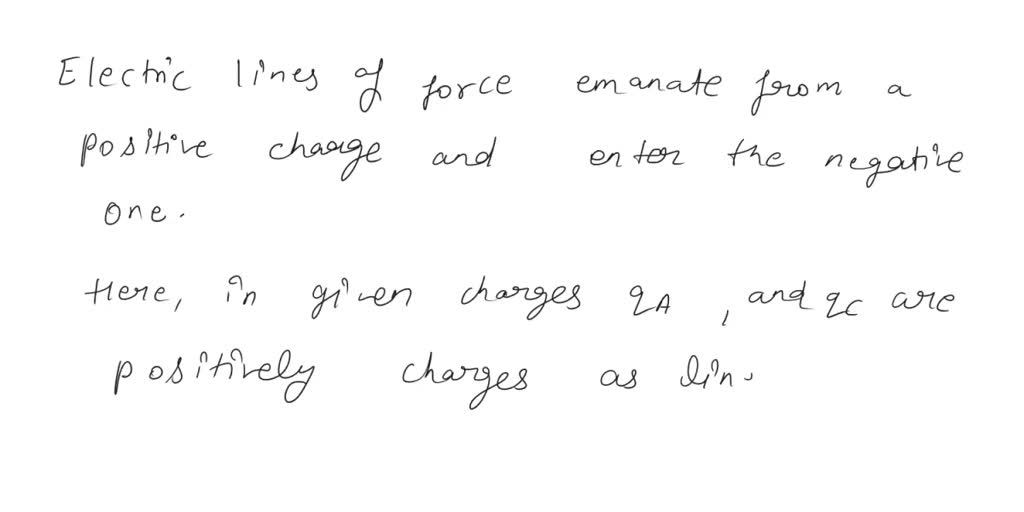 Electric lines of force emanate from a
positive charge and enter the negative
one.
Here, in given charges qA, and qC are
positively charges as lin